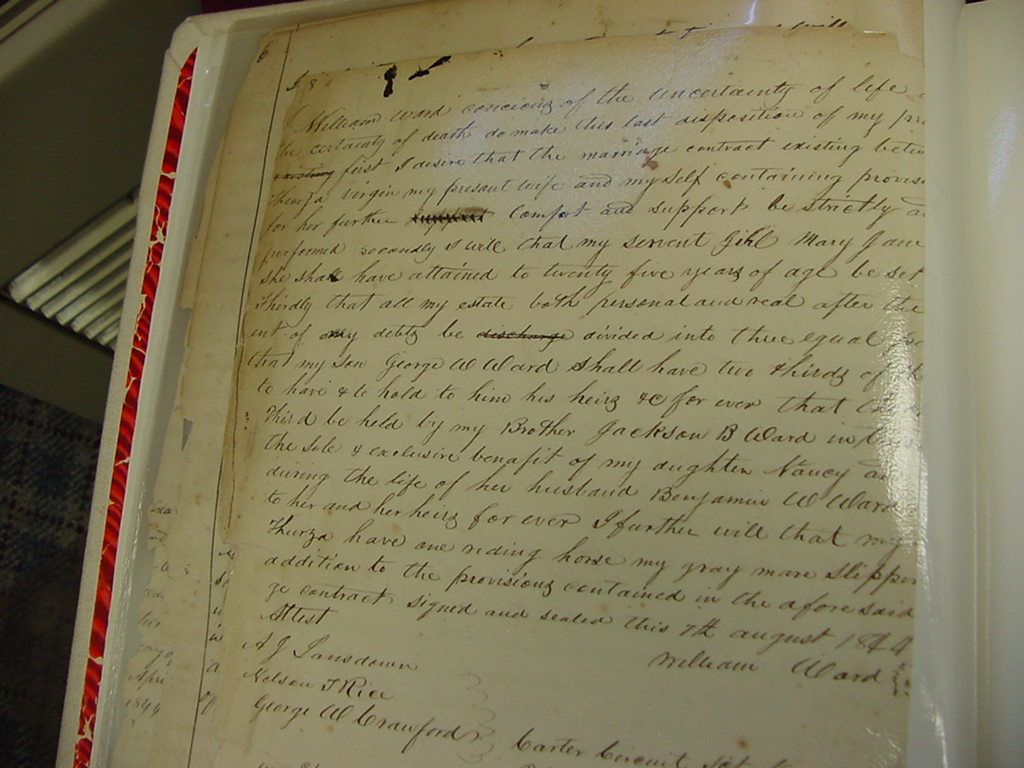 William Ward conciouz of the uncertainty of life
the certainty of death do make this last disposition of my
existing first I desire that the marriage contract existing
Thurza virgin my present wife and my self containing
for her further comfort and support be strictly
performed secondly I will that my servent Girl Mary Jane
she shall have attained to twenty five yearz of age be set
Thirdly that all my estate both personal and real after the
ent of my debtz be discharge divided into three equal
that my son George W Ward shall have two thirdz of
to have & to hold to him his heirz &c for ever that
third be held by my Brother Jackson B Ward in
the sole & exclusive benafit of my daughter Nancy
during the life of her husband Benjamin W Ward
to her and her heirz for ever I further will that my
Thurza have one riding horse my gray mare Slipper
addition to the provisionz contained in the afore said
ge contract signed and sealed this 7th august 1844
Attest
William Ward
A J Lansdown
Nelson T Rice
George W Crawford
Carter Circuit
Apri
1844